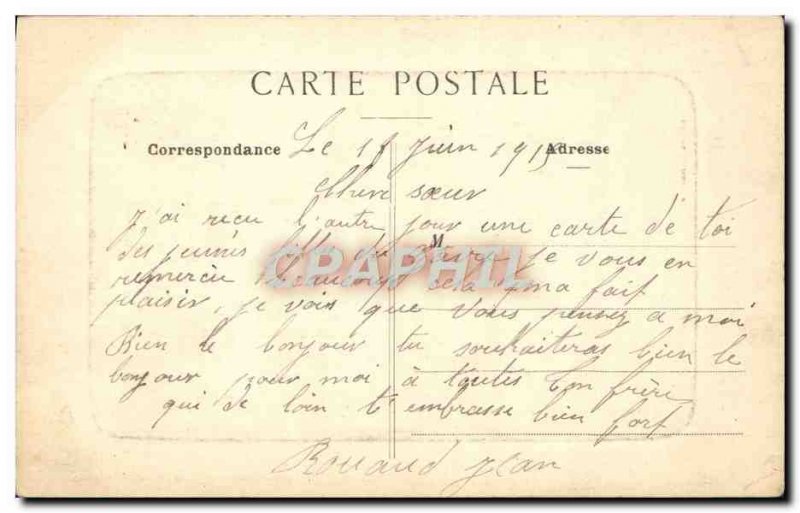 CARTE POSTALE
Correspondance Le 11 Juin 1915 Adresse
Chere sœur
J'ai recu l'autre jour une carte de toi
des jeunes du M je vous en
remercie beaucoup cela ma fait
plaisir, je vois que vous pensez a moi
Bien le bonjour tu souhaiteras bien le
bonjour pour moi à toutes Ton frère
qui de loin t'embrasse bien fort
Rouaud Jean
CPAPHIL